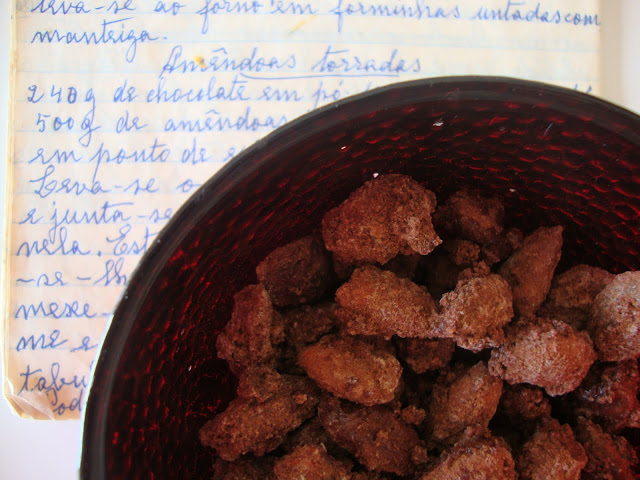 leva-se ao forno em forminhas untadas com
manteiga.
Amêndoas torradas
240g de chocolate em pó
500g de amêndoas
em ponto de
Leva-se o
e junta-se
nela. Est
-se-lh
mexe-
me e
tabu